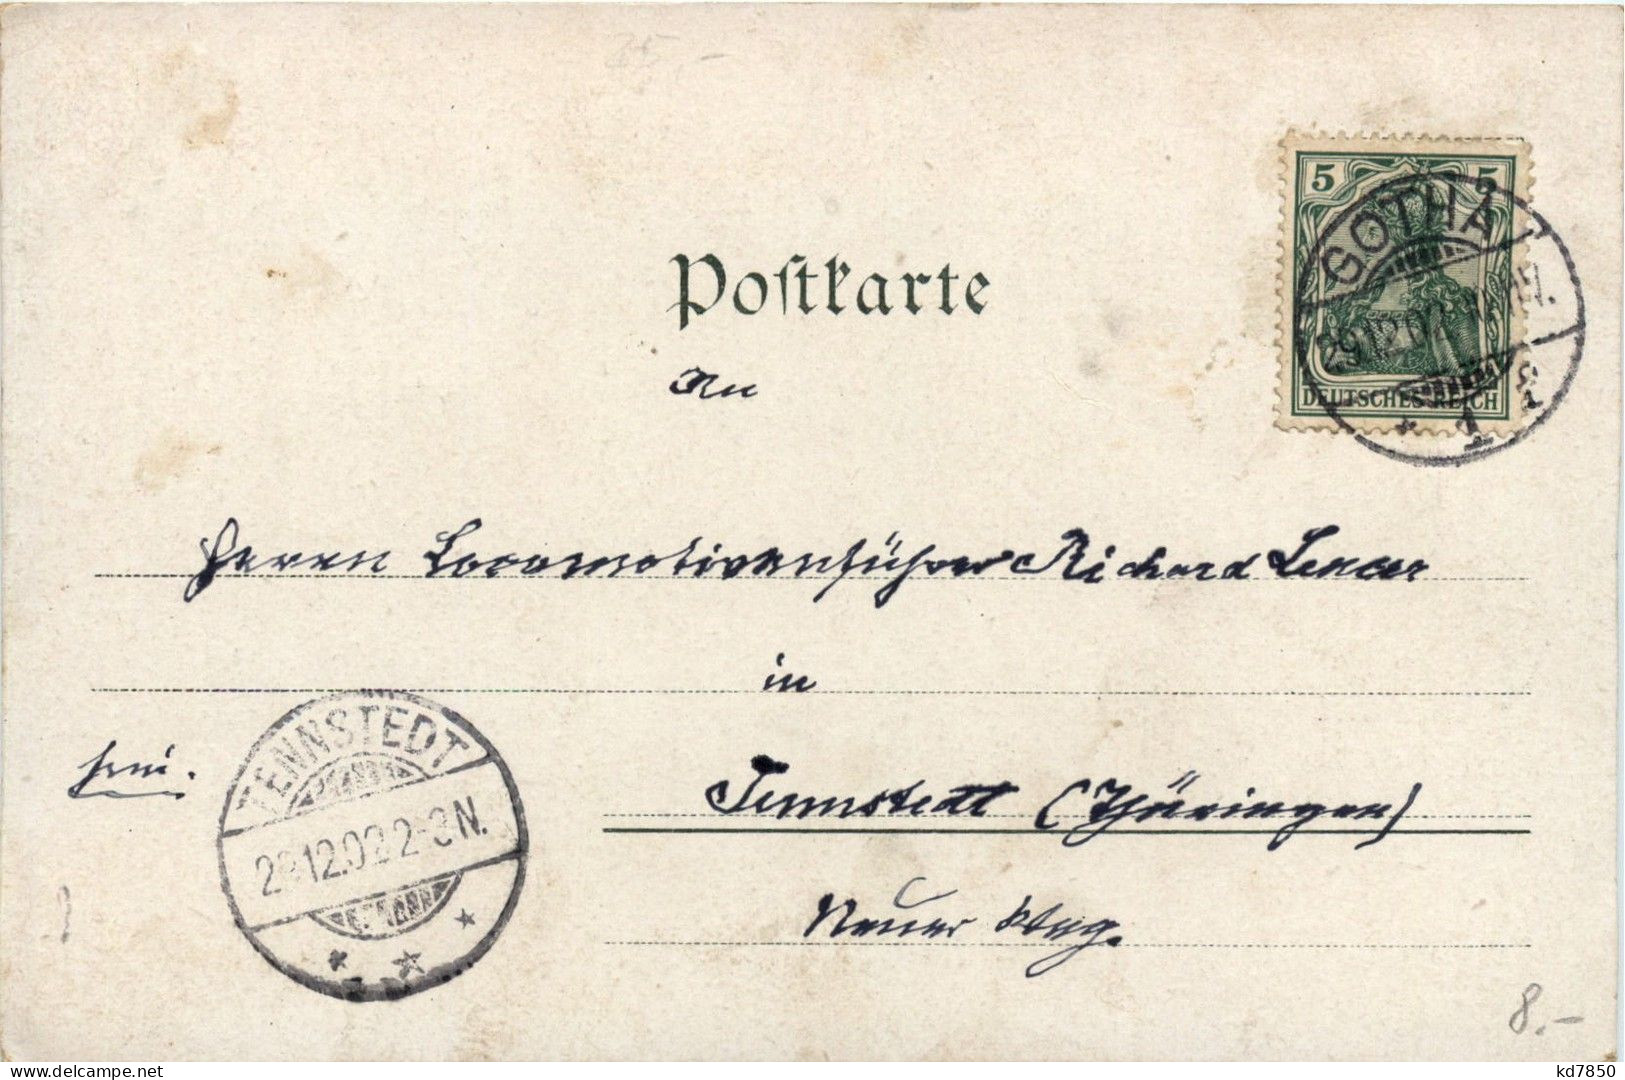 25,-
5 5
GOTHA
29.12.02
DEUTSCHES REICH
* 1 *
Postkarte
An
Herrn Locomotivenführer Richard
in
frei.
Tennstedt (Thüringen)
Neuer Weg.
TENNSTEDT
29.12.02 2-3N.
* * *
8.-
kd7850